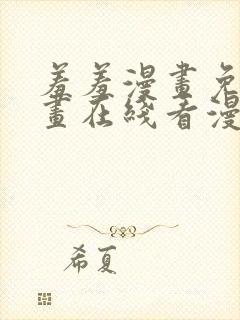 羞羞漫畫免
畫在线看漫
希夏